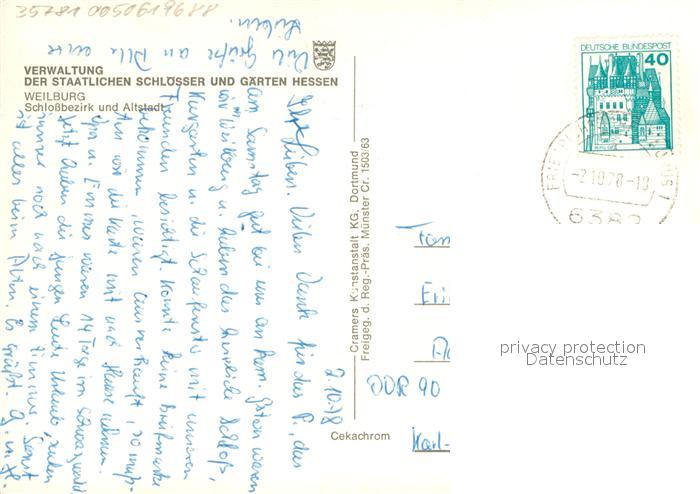 35781 0050619688
VERWALTUNG
DER STAATLICHEN SCHLÖSSER UND GÄRTEN HESSEN
WEILBURG
Schloßbezirk und Altstadt
2.10.78
Ihr Lieben. Vielen Dank für das P., das
am Samstag gut bei uns an kam. Gestern waren
wir in Weilburg u. haben das herrliche Schloß,
Kurgarten u. die mit unseren
Freunden besichtigt. Konnte keine Briefmarke
bekommen, waren ausverkauft, so muß-
ten wir die Karte mit nach Hause nehmen.
u. waren 14 Tage im Schwarzwald
Jetzt haben die jungen Leute Urlaub,
immer noch nach einem Zimmer. Sonst
ist alles beim Alten. Es grüßt
Viele Grüße an Alle
Cramers Kunstanstalt KG, Dortmund
Freigeg. d. Reg.-Präs. Münster Cr. 1503/63
Cekachrom
DEUTSCHE BUNDESPOST
40
BURG ELTZ
-2.10.78-18
6382
Fam
Eri
DDR 90
Karl-
privacy protection
Datenschutz